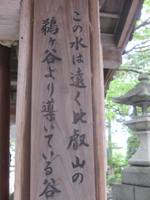 この水は遠く比叡山の
鵜ヶ谷より導いている谷